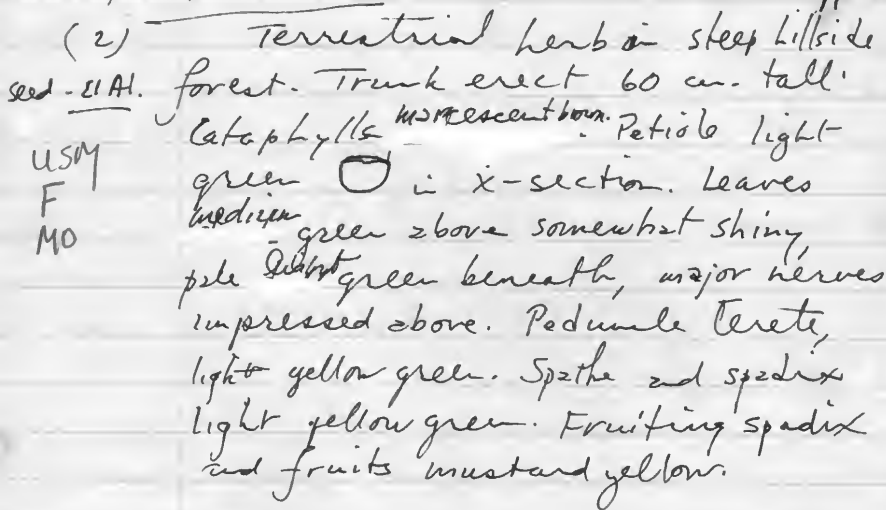 (2) Terrestrial herb in steep hillside
seed - forest. Trunk erect 60 cm. tall.
Cataphylls marcescent brown. Petiole light
USM green in x-section. Leaves
F medium green above somewhat shiny,
MO pale green beneath, major nerves
impressed above. Peduncle terete,
light yellow green. Spathe and spadix
light yellow green. Fruiting spadix
and fruits mustard yellow.